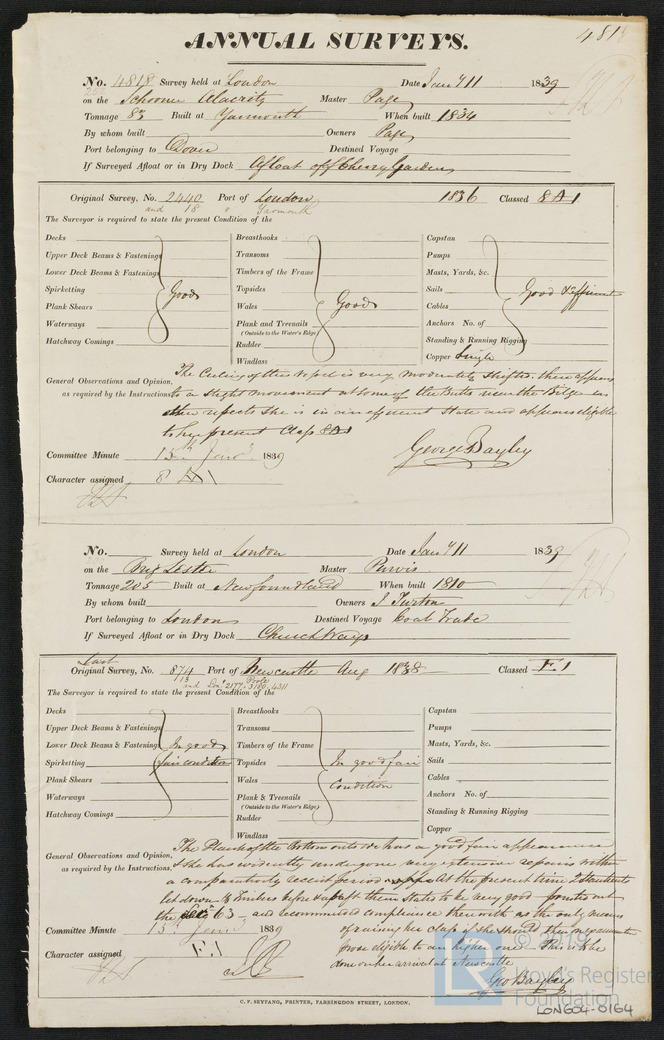 481
ANNUAL SURVEYS.
No. 4818 Survey held at London Date Jany 11 1839
on the Schooner Alacrity Master Page
Tonnage 85 Built at Yarmouth When built 1834
By whom built Owners Page
Port belonging to Dover Destined Voyage
If Surveyed Afloat or in Dry Dock Afloat off Cherry Garden
Original Survey, No. 2440 Port of London 1836 Classed 8 A 1
and 18 " Yarmouth
The Surveyor is required to state the present Condition of the
Decks Breasthooks Capstan
Upper Deck Beams & Fastenings Transoms Pumps
Lower Deck Beams & Fastenings Timbers of the Frame Masts, Yards, &c.
Spirketting Good Topsides Sails Good & efficient
Plank Shears Wales Good Cables
Waterways Plank and Treenails Anchors No. of
(Outside to the Water's Edge)
Hatchway Comings Rudder Standing & Running Rigging
Windlass Copper Single
The Ceiling of this vessel is very moderately shifted. there appears
General Observations and Opinion,
as required by the Instructions to a slight movement at some of the Butts near the Bilge in
other respects she is in an efficient State and appears eligible
to her present Class 8A1
George Bayley
Committee Minute 15th Jany 1839
Character assigned 8 A 1
No. Survey held at London Date Jany 11 1839
on the Brig Lester Master Purvis
Tonnage 205 Built at Newfoundland When built 1810
By whom built Owners J Turton
Port belonging to London Destined Voyage Coal Trade
If Surveyed Afloat or in Dry Dock Church Ways
Last
Original Survey, No. 874 Port of Newcastle Aug 1838 Classed E 1
13 and Lon 2177, Poole 3180, 4311
The Surveyor is required to state the present Condition of the
Decks Breasthooks Capstan
Upper Deck Beams & Fastenings Transoms Pumps
Lower Deck Beams & Fastenings In good Timbers of the Frame Masts, Yards, &c.
Spirketting fair condition Topsides In good fair Sails
Plank Shears Wales Condition Cables
Waterways Plank & Treenails Anchors No. of
(Outside to the Water's Edge)
Hatchway Comings Rudder Standing & Running Rigging
Windlass Copper
The Plank of the Bottom outside has a good fair appearance
General Observations and Opinion, & she has evidently undergone very extensive repairs within
as required by the Instructions, a comparatively recent period. At the present time
let down Timbers before & abaft them states to be very good pointed out
the 63 and recommended compliance therewith as the only means
Committee Minute 15th Jany 1839 of raising her class if she should then appear
Character assigned E 1 more eligible to an higher one This to be
done on her arrival at Newcastle
Geo Bayley
C. F. SEYFANG, PRINTER, FARRINGDON STREET, LONDON.
© 2019
LR
Lloyd's Register
Foundation
LON604-0164